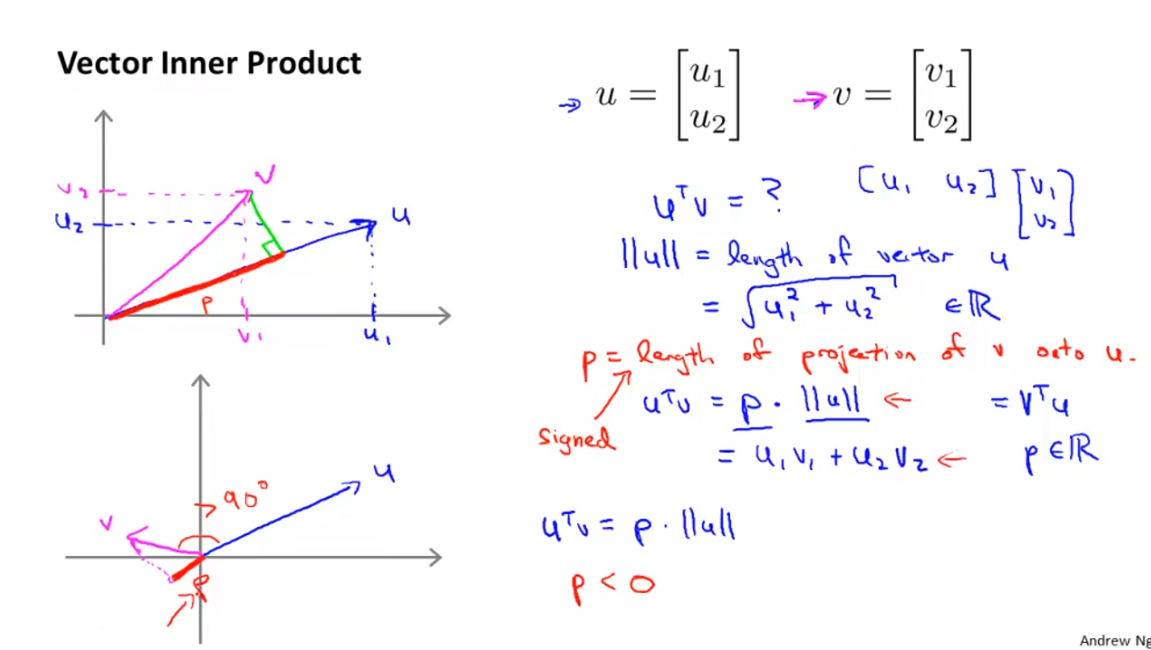 Vector Inner Product
u = [u1 u2]
v = [v1 v2]
v2
v
u2
u
p
v1
u1
uᵀv = ?
[u1 u2] [v1 v2]
||u|| = length of vector u
= √u1² + u2² ∈ ℝ
p = length of projection of v onto u.
signed
uᵀv = p · ||u|| ← = vᵀu
= u1v1 + u2v2 ← p ∈ ℝ
u
> 90°
v
p
uᵀv = p · ||u||
p < 0
Andrew Ng